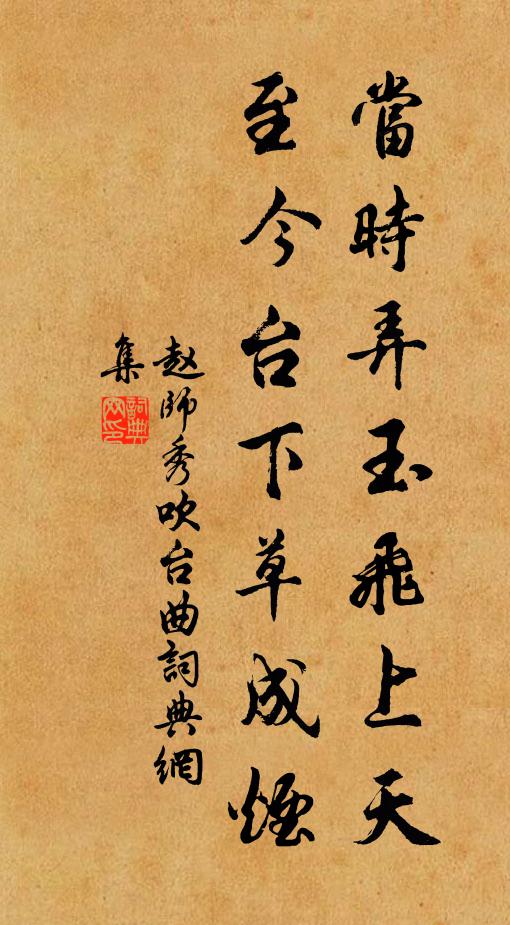 當時弄玉飛上天
至今台下草成煙
赵師秀吹台曲詞典網
集
詞典網印